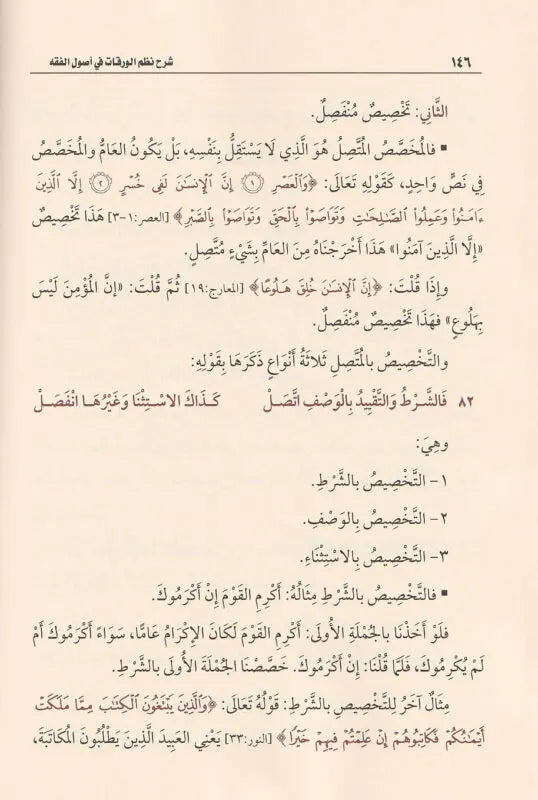 ١٤٦ شرح نظم الورقات في أصول الفقه
الثَّانِي: تَخْصِيصٌ مُنْفَصِلٌ.
▪ فالمُخَصَّصُ المُتَّصِلُ هُوَ الَّذِي لَا يَسْتَقِلُّ بِنَفْسِهِ، بَلْ يَكُونُ العَامُّ والمُخَصَّصُ
فِي نَصٍّ وَاحِدٍ، كَقَوْلِهِ تَعَالَى: ﴿وَٱلۡعَصۡرِ ۝١ إِنَّ ٱلۡإِنسَٰنَ لَفِي خُسۡرٍ ۝٢ إِلَّا ٱلَّذِينَ
ءَامَنُواْ وَعَمِلُواْ ٱلصَّٰلِحَٰتِ وَتَوَاصَوۡاْ بِٱلۡحَقِّ وَتَوَاصَوۡاْ بِٱلصَّبۡرِ﴾ [العصر:١-٣] هَذَا تَخْصِيصٌ
«إِلَّا الَّذِينَ آمَنُوا» هَذَا أَخْرَجْنَاهُ مِنَ العَامِّ بِشَيْءٍ مُتَّصِلٍ.
وإِذَا قُلْتَ: ﴿إِنَّ ٱلۡإِنسَٰنَ خُلِقَ هَلُوعًا﴾ [المعارج:١٩] ثُمَّ قُلْتَ: «إنَّ المُؤْمِنَ لَيْسَ
بِهَلُوعٍ» فهَذَا تَخْصِيصٌ مُنْفَصِلٌ.
والتَّخْصِيصُ بالمُتَّصِلِ ثَلاثَةُ أَنْوَاعٍ ذَكَرَهَا بِقَوْلِهِ:
٨٢ فَالشَّرْطُ وَالتَّقْيِيدُ بِالْوَصْفِ اتَّصَلْ كَذَاكَ الاسْتِثْنَا وَغَيْرُهَا انْفَصَلْ
وهِيَ:
١- التَّخْصِيصُ بالشَّرْطِ.
٢- التَّخْصِيصُ بِالوَصْفِ.
٣- التَّخْصِيصُ بِالاسْتِثْنَاءِ.
▪ فالتَّخْصِيصُ بالشَّرْطِ مِثَالُهُ: أَكْرِمِ القَوْمَ إِنْ أَكْرَمُوكَ.
فلَوْ أَخَذْنَا بالجُمْلَةِ الأُولَى: أَكْرِمِ القَوْمَ لَكَانَ الإِكْرَامُ عَامًّا، سَوَاءٌ أَكْرَمُوكَ أَمْ
لَمْ يُكْرِمُوكَ، فَلَمَّا قُلْنَا: إِنْ أَكْرَمُوكَ. خَصَّصْنَا الجُمْلَةَ الأُولَى بالشَّرْطِ.
مِثَالٌ آخَرُ لِلتَّخْصِيصِ بِالشَّرْطِ: قَوْلُهُ تَعَالَى: ﴿وَٱلَّذِينَ يَبۡتَغُونَ ٱلۡكِتَٰبَ مِمَّا مَلَكَتۡ
أَيۡمَٰنُكُمۡ فَكَاتِبُوهُمۡ إِنۡ عَلِمۡتُمۡ فِيهِمۡ خَيۡرًا﴾ [النور:٣٣] يَعْنِي العَبِيدَ الَّذِينَ يَطْلُبُونَ المُكَاتَبَةَ،